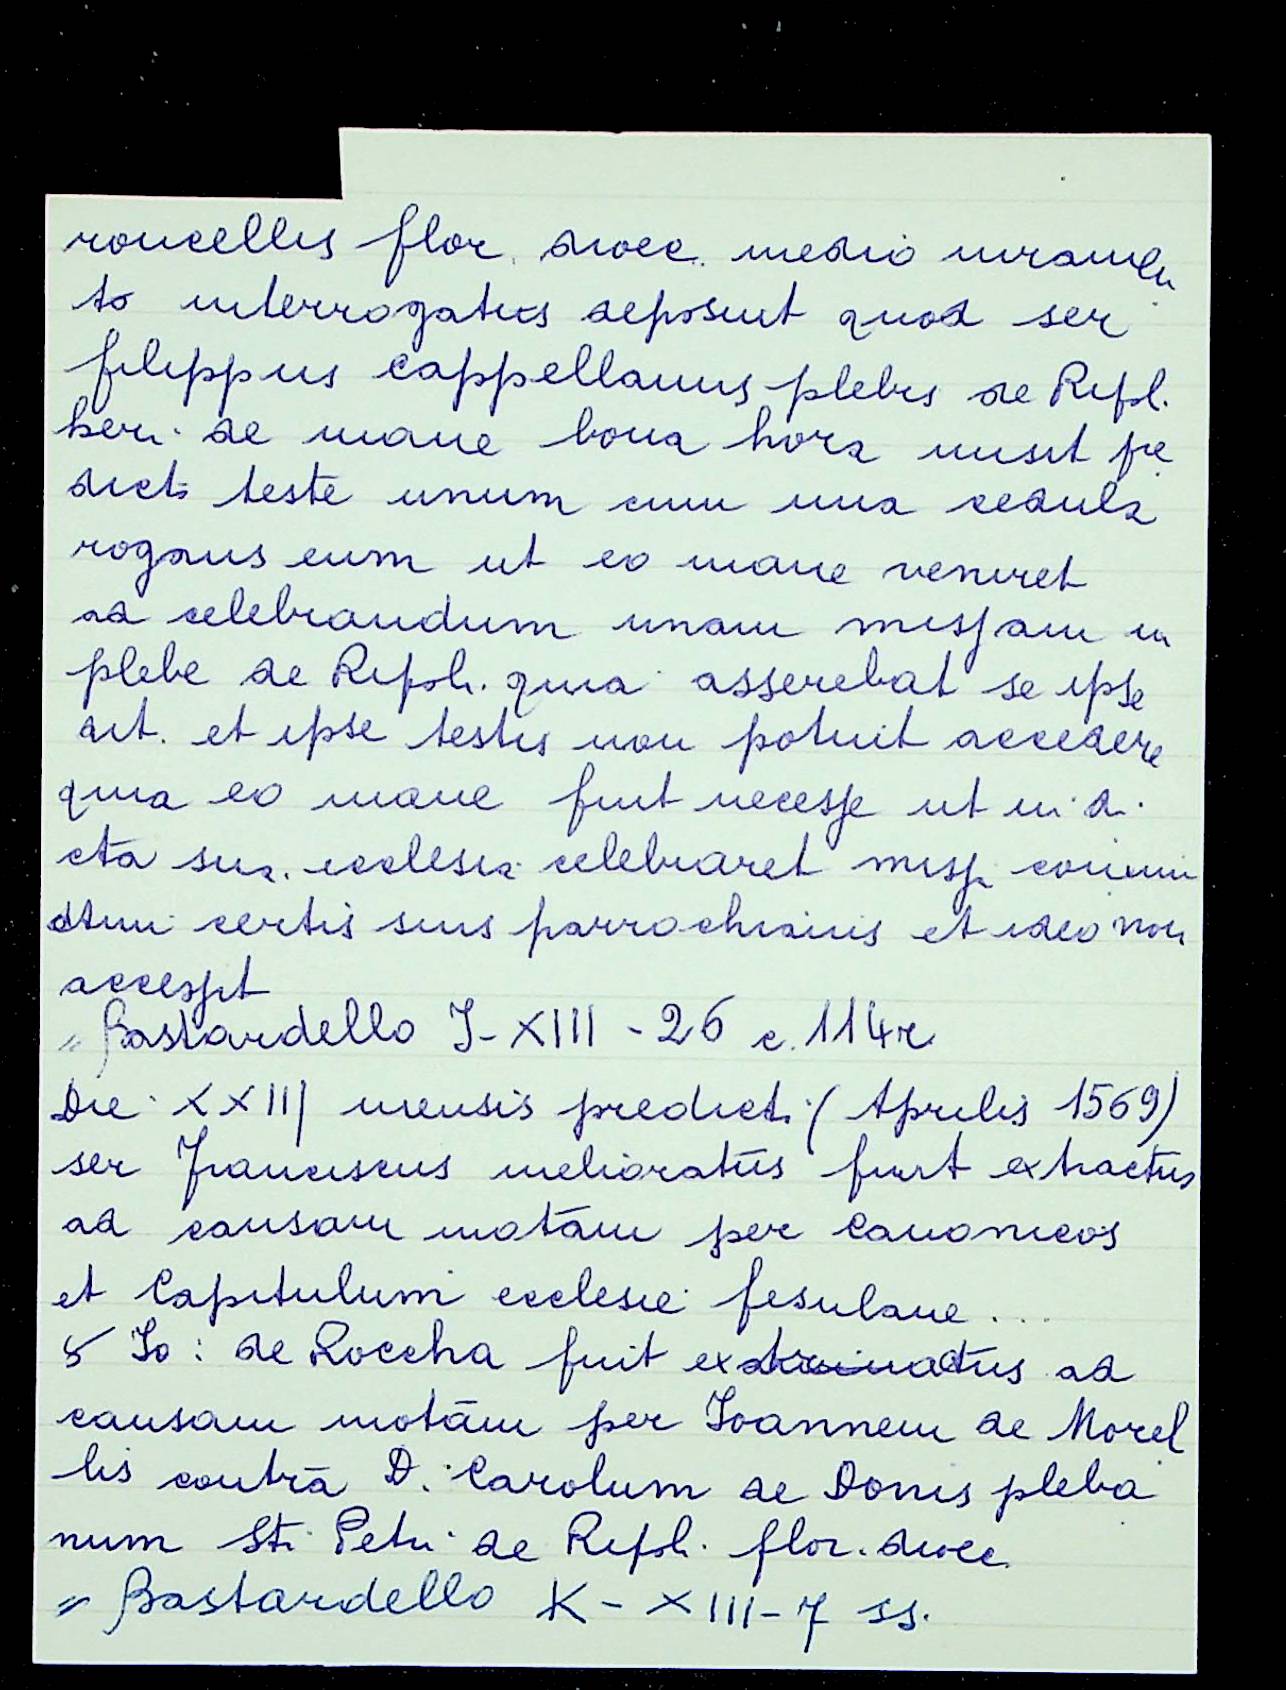 roncellis flor. dioec. medio iuramen
to interrogatus deposuit quod ser
filippus cappellanus plebis de Ripol.
heri de mane bona hora misit pre
dicto teste unum cum una cedula
rogans eum ut eo mane veniret
ad celebrandum unam missam in
plebe de Ripoli. quia asserebat se ipse
dit. et ipse testis non potuit accedere
quia eo mane fuit necesse ut in di
cta sua ecclesia celebraret miss.
certis suis parrochianis et ideo non
accessit
" Bastardello J-XIII - 26 c. 114r
Die XXIII mensis predicti (Aprilis 1569)
ser Franciscus melioratus fuit extractus
ad causam motam per Canonicos
et Capitulum ecclesie fesulane ...
Io: de Roccha fuit ad
causam motam per Joannem de Morel
lis contra D. Carolum de Donis pleba
num Sti Petri de Ripoli. flor. dioec.
" Bastardello K - XIII - 7 ss.